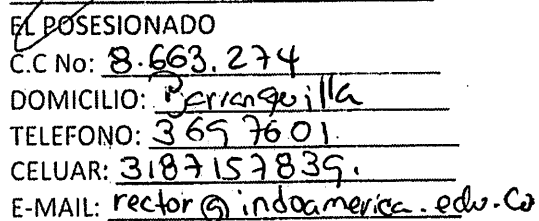 EL POSESIONADO
C.C No: 8.663.274
DOMICILIO: Barranquilla
TELEFONO: 369 7601.
CELUAR: 3187157839.
E-MAIL: rector@indoamerica.edu.co